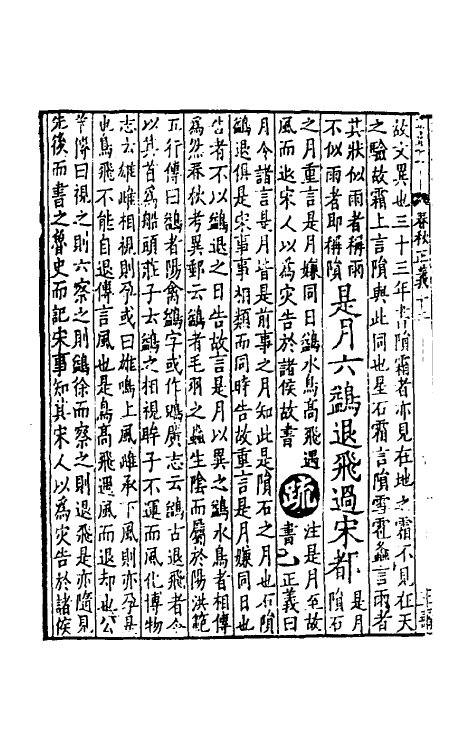 春秋正義十二
故文異也三十三年書隕霜者亦見在地之霜不見在天
之驗故霜上言隕與此同也星石霜言隕雪雹螽言雨者
其狀似雨者稱雨
不似雨者即稱隕
是月六鷁退飛過宋都
是月
隕石
之月重言是月嫌同日鷁水鳥高飛遇
風而退宋人以為灾告於諸侯故書
疏
注是月至故
書 正義曰
月令諸言是月皆是前事之月知此是隕石之月也石隕
鷁退俱是宋事事相類而同時告故重言是月嫌同日也
告者不以鷁退之日告故言是月以異之鷁水鳥相傳
為然春秋考異郵云鷁者毛羽之蟲生陰而屬於陽洪範
五行傳曰鷁者陽禽鷁字或作鶂廣志云鷁古退飛者今
以其首為船頭莊子云鷁之相視眸子不運而風化博物
志云雄雌相視則孕或曰雄鳴上風雌承下風則亦孕是
也鳥飛不能自退傳言風也是鳥高飛遇風而退却也公
羊傳曰視之則六察之則鷁徐而察之則退飛是亦隨見
先後而書之魯史而記宋事知其宋人以為灾告於諸侯